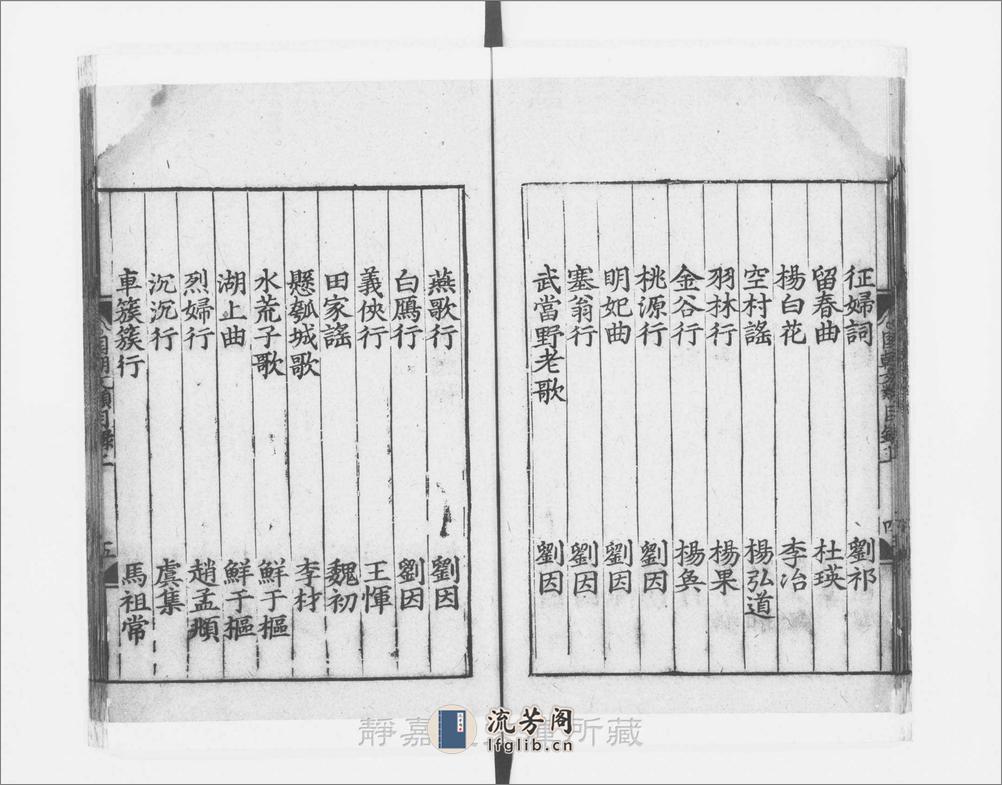 征婦詞 劉祁
留春曲 杜瑛
楊白花 李冶
空村謠 楊弘道
羽林行 楊果
金谷行 楊奐
桃源行 劉因
明妃曲 劉因
塞翁行 劉因
武當野老歌 劉因
燕歌行 劉因
白鴈行 劉因
義俠行 王惲
田家謠 魏初
懸瓠城歌 李材
水荒子歌 鮮于樞
湖上曲 鮮于樞
烈婦行 趙孟頫
沉沉行 虞集
車簇簇行 馬祖常
五
靜嘉 所藏
流芳阁
lfglib.cn